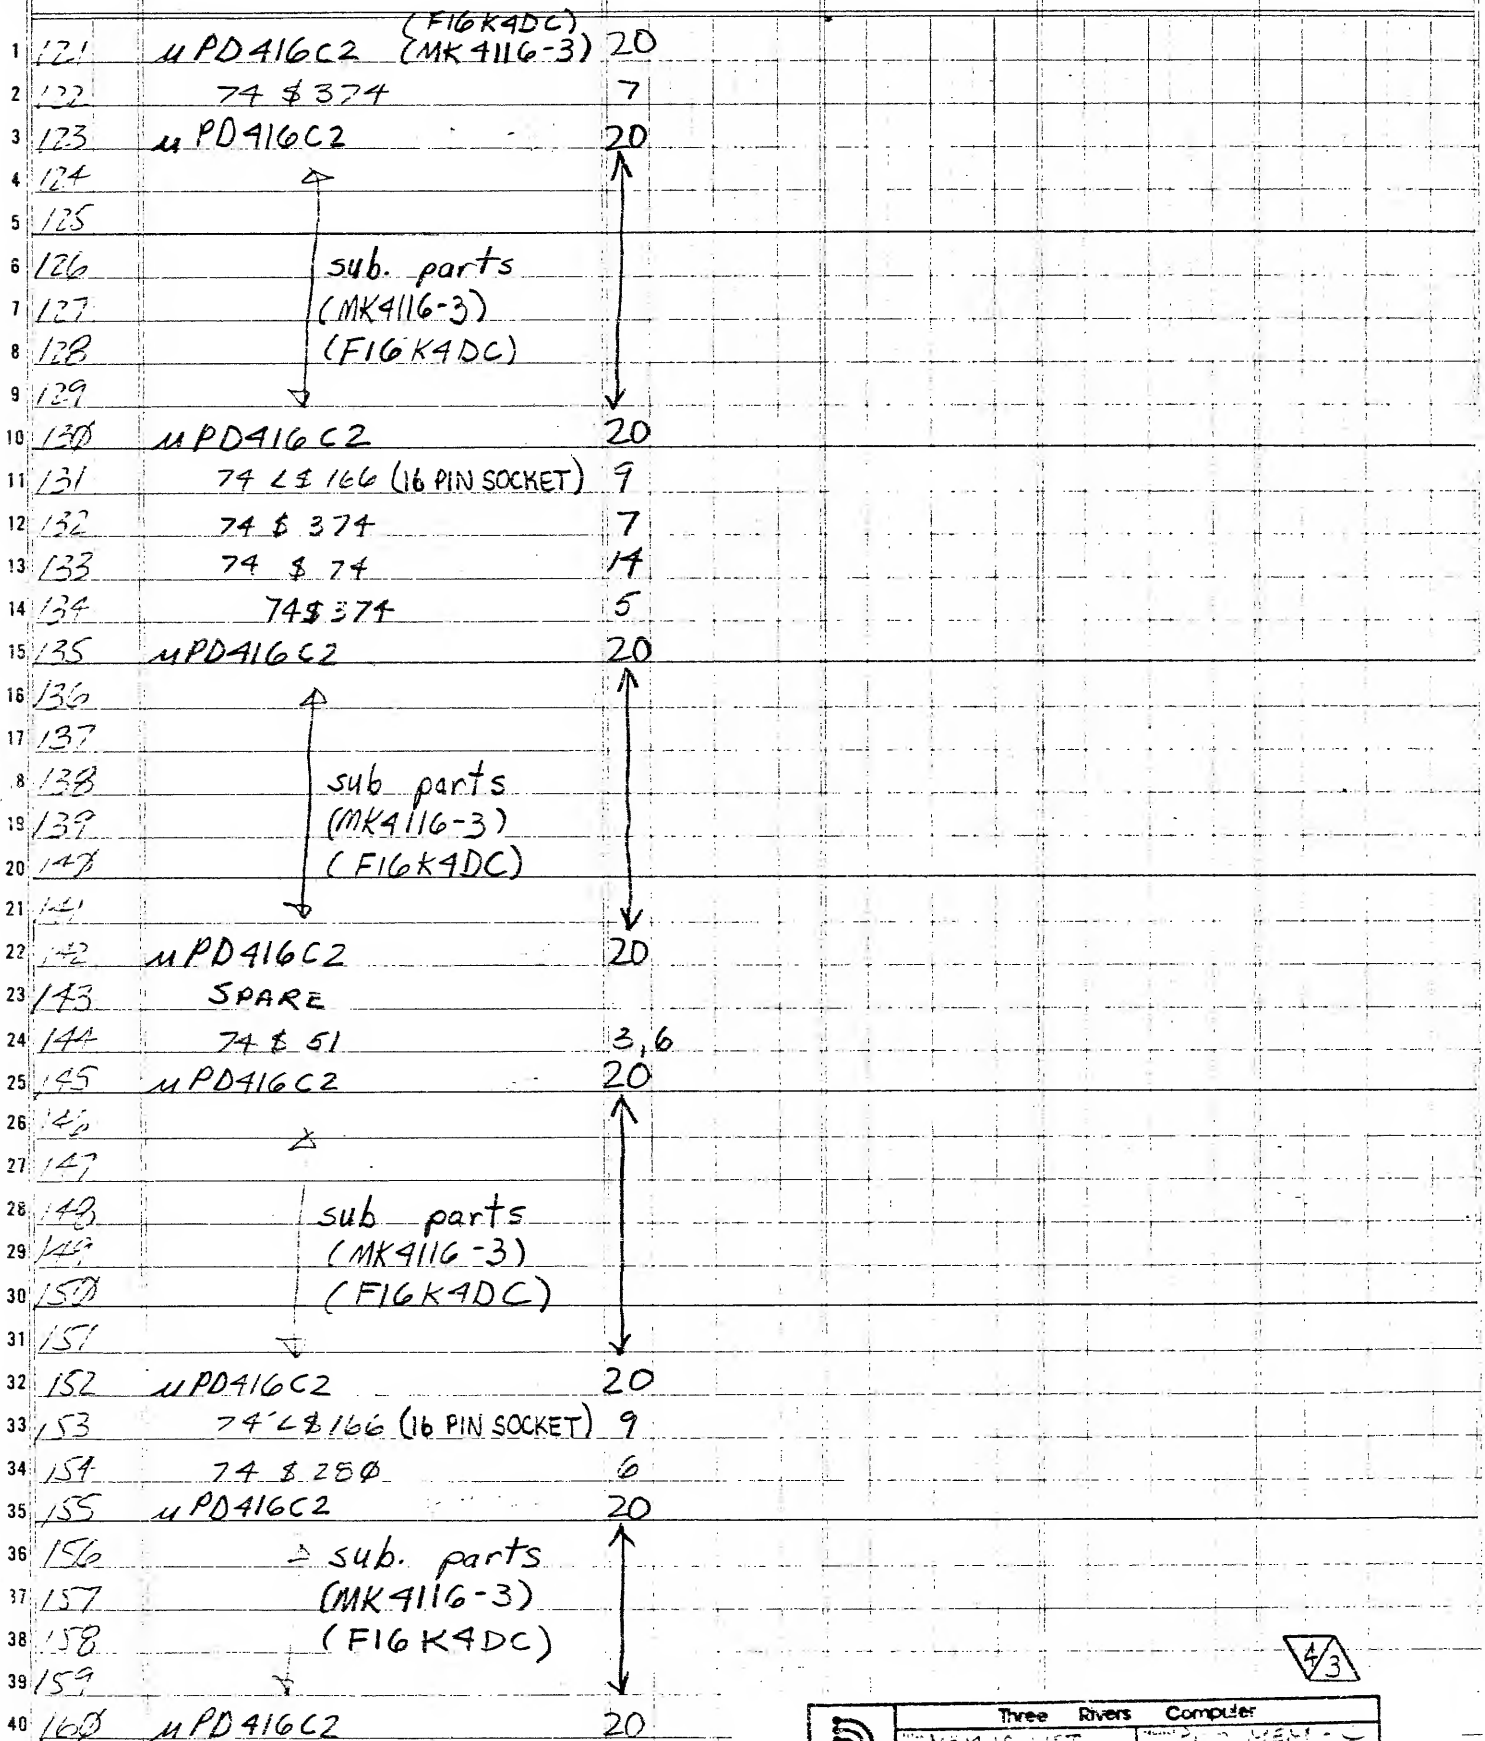 (F16K4DC)
1 121 µPD416C2 (MK4116-3) 20
2 122 74 S 374 7
3 123 µPD416C2 20
4 124
5 125
6 126 sub. parts
7 127 (MK4116-3)
8 128 (F16K4DC)
9 129
10 13Ø µPD416C2 20
11 131 74 LS 166 (16 PIN SOCKET) 9
12 132 74 S 374 7
13 133 74 S 74 14
14 134 74S374 5
15 135 µPD416C2 20
16 136
17 137
8 138 sub parts
19 139 (MK4116-3)
20 14Ø (F16K4DC)
21 141
22 142 µPD416C2 20
23 143 SPARE
24 144 74 S 51 3,6
25 145 µPD416C2 20
26 146
27 147
28 148 sub parts
29 149 (MK4116-3)
30 15Ø (F16K4DC)
31 151
32 152 µPD416C2 20
33 153 74 LS166 (16 PIN SOCKET) 9
34 154 74 S 28Ø 6
35 155 µPD416C2 20
36 156 sub. parts
37 157 (MK4116-3)
38 158 (F16K4DC)
39 159
40 16Ø µPD416C2 20
4/3
Three Rivers Computer